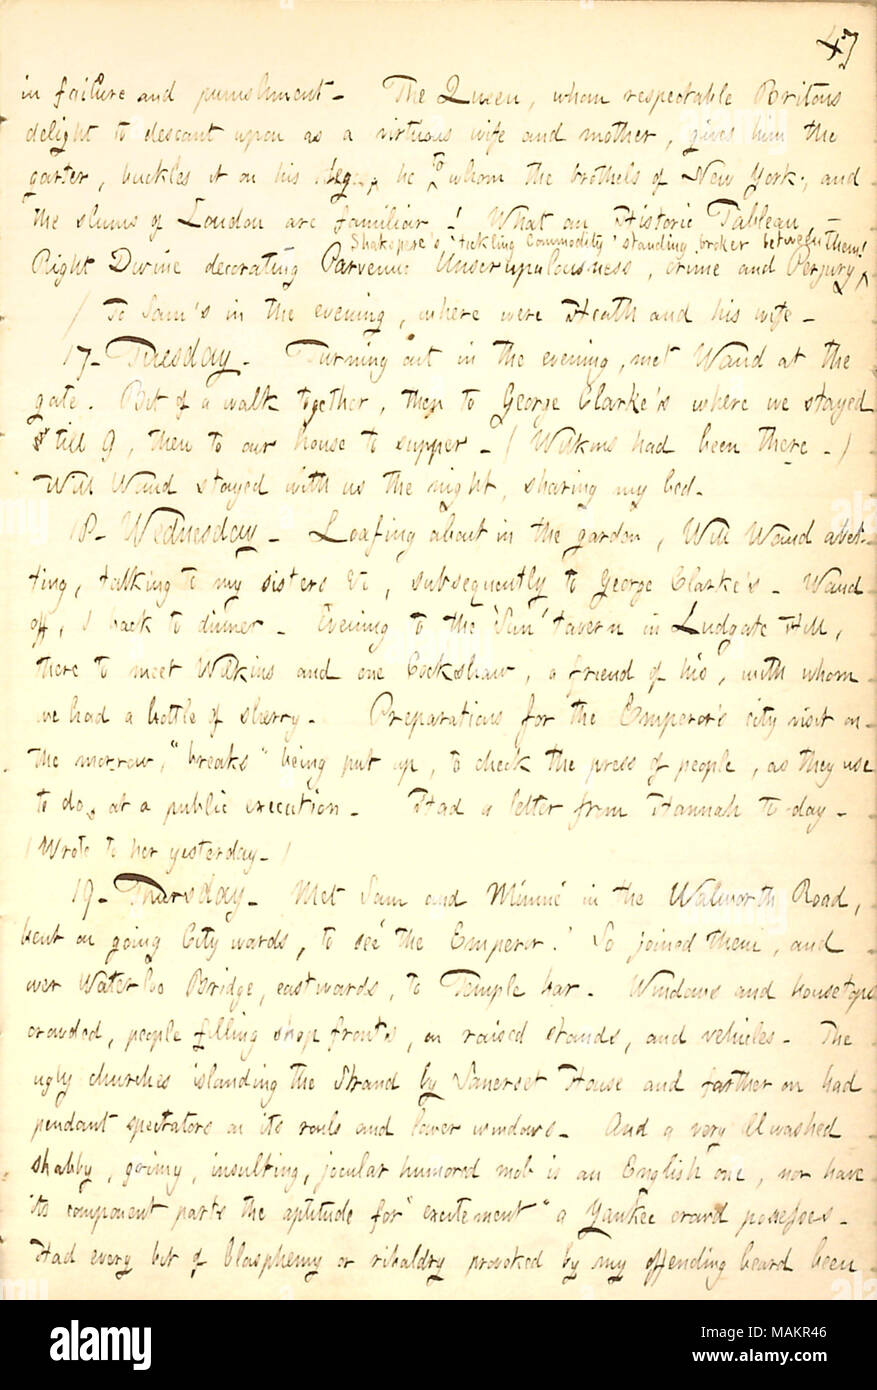 47
in failure and punishment. The Queen, whom respectable Britons
delight to descant upon as a virtuous wife and mother, gives him the
garter, buckles it on his leg, he to whom the brothels of New York, and
the slums of London are familiar! What an Historic Tableau —
Shakspere's 'tickling Commodity' standing broker between them!
Right Divine decorating Parvenue Unscrupulousness, crime and Perjury
/ To Sam's in the evening, where were Heath and his wife.
17. Tuesday. Turning out in the evening, met Waud at the
gate. Bit of a walk together, then to George Clarke's where we stayed
till 9, then to our house to supper. (Wilkins had been there.)
Will Waud stayed with us the night, sharing my bed.
18. Wednesday. Loafing about in the garden, Will Waud abet-
ting, talking to my sisters &c, subsequently to George Clarke's. Waud
off, I back to dinner. Evening to the 'Sun' tavern in Ludgate Hill,
there to meet Wilkins and one Cockshaw, a friend of his, with whom
we had a bottle of sherry. Preparations for the Emperor's city visit on
the morrow, "breaks" being put up, to check the press of people, as they use
to do at a public execution. Had a letter from Hannah to-day.
(Wrote to her yesterday.)
19. Thursday. Met Sam and Minnie in the Walworth Road,
bent on going City wards, to see the Emperor! So joined them, and
over Waterloo Bridge, eastwards, to Temple bar. Windows and housetops
crowded, people filling shop fronts, on raised stands, and vehicles. The
ugly churches islanding the Strand by Somerset House and farther on had
pendant spectators on its rails and lower windows. And a very ill washed
shabby, grimy, insulting, jocular humored mob is an English one, nor have
its component parts the aptitude for "excitement" a Yankee crowd possesses.
Had every bit of blasphemy or ribaldry provoked by my offending beard been
alamy
Image ID: MAKR46
www.alamy.com